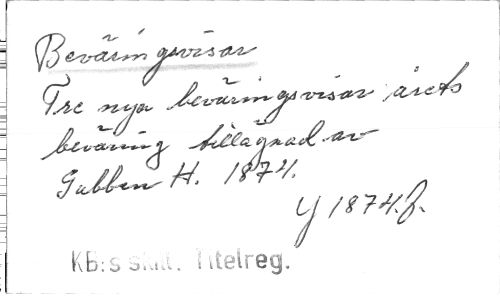 Beväringsvisar
Tre nya beväringsvisar årets
beväring tillägnad av
Gubben H. 1874.
Y 1874.f.
KB:s skill. Titelreg.